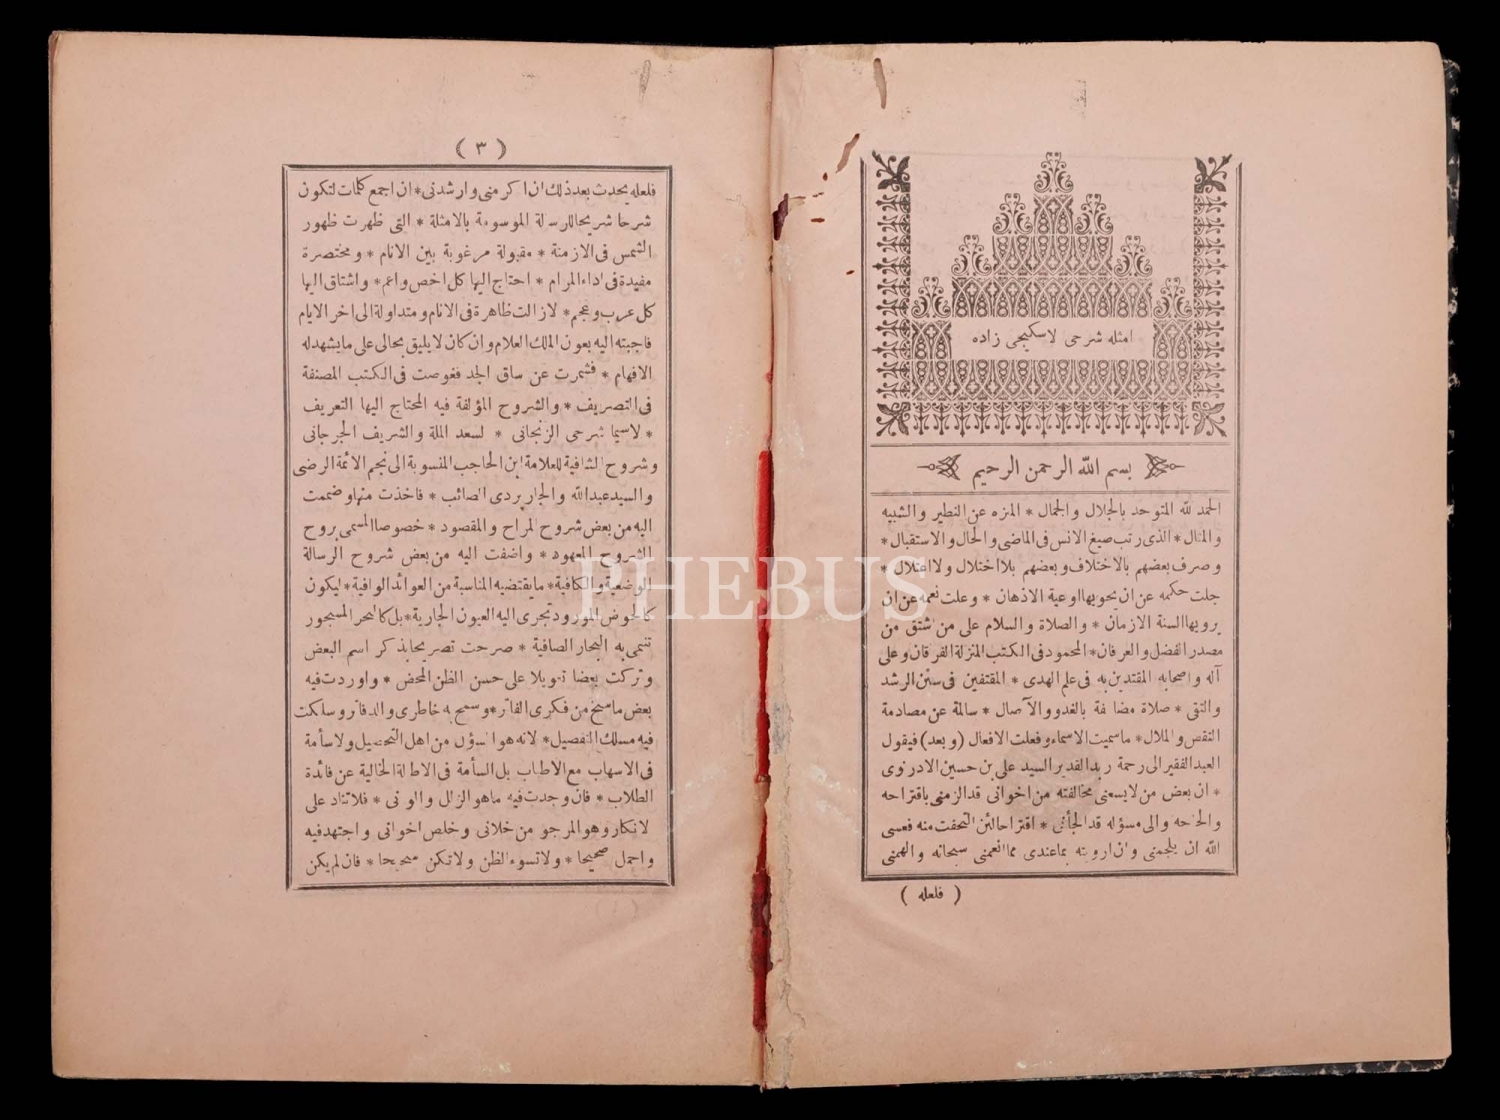 امثله شرحى لاسكيجى زاده
بسم الله الرحمن الرحيم
الحمد لله المتوحد بالجلال والجمال * المنزه عن النظير والشبيه
والمثال * الذى رتب صيغ الانس فى الماضى والحال والاستقبال *
وصرف بعضهم بالاختلاف وبعضهم بلا اختلال ولا اعتلال *
جلت حكمه عن ان يحويها اوعية الاذهان * وعلت نعمه عن ان
يرويها السنة الازمان * والصلاة والسلام على من اشتق من
مصدر الفضل والعرفان * المحمود فى الكتب المنزلة الفرقان وعلى
آله واصحابه المقتدين به فى علم الهدى * المقتفين فى سنن الرشد
والتقى * صلاة مضافة بالغدو والآصال * سالمة عن مصادمة
النقص والملال * ماسميت الاسماء وفعلت الافعال (وبعد) فيقول
العبد الفقير الى رحمة ربه القدير السيد على بن حسين الادرنوى
* ان بعض من لايسعنى مخالفته من اخوانى قد الزمنى باقتراحه
والحاحه والى مسؤله قد الجأنى * اقتراحا لئن التحفت منه فعسى
الله ان يلجمنى وان ارويته بماعندى مما انعمنى سبحانه والهمنى
( فلعله )
( ٣ )
فلعله يحدث بعد ذلك ان اكرمنى وارشدنى * ان اجمع كلمات لتكون
شرحا شريحا للرسالة الموسومة بالامثلة * التى ظهرت ظهور
الشمس فى الازمنة * مقبولة مرغوبة بين الانام * ومختصرة
مفيدة فى اداء المرام * احتاج اليها كل اخص واعم * واشتاق اليها
كل عرب وعجم * لازالت ظاهرة فى الانام ومتداولة الى اخر الايام
فاجبته اليه بعون الملك العلام وان كان لا يليق بحالى على مايشهد له
الافهام * فشمرت عن ساق الجد فغوصت فى الكتب المصنفة
فى التصريف * والشروح المؤلفة فيه المحتاج اليها التعريف
* لاسيما شرحى الزنجانى * لسعد الملة والشريف الجرجانى
وشروح الشافية للعلامة ابن الحاجب المنسوبة الى نجم الائمة الرضى
والسيد عبدالله والجاربردى الصائب * فاخذت منها وضممت
اليه من بعض شروح المراح والمقصود * خصوصا المسمى بروح
الشروح المعهود * واضفت اليه من بعض شروح الرسالة
الوضعية والكافية * مايقتضيه المناسبة من العوائد الوافية * ليكون
كالحوض المورود تجرى اليه العيون الجارية * بل كالبحر المسجور
تنمى به البحار الصافية * صرحت تصريحا بذكر اسم البعض
وتركت بعضا تعويلا على حسن الظن المحض * واوردت فيه
بعض ماسنح من فكرى الفاتر * وسمح به خاطرى والدفاتر وسلكت
فيه مسلك التفصيل * لانه هو المسؤل من اهل التحصيل ولا سأمة
فى الاسهاب مع الاطناب بل السأمة فى الاطالة الخالية عن فائدة
الطلاب * فان وجدت فيه ماهو الزلل والونى * فلا تناد على
لانكار وهو المرجو من خلانى وخلص اخوانى واجتهد فيه
واحمل صحيحا * ولا تسوء الظن ولا تكن مبحبحا * فان لم يكن
PHEBUS